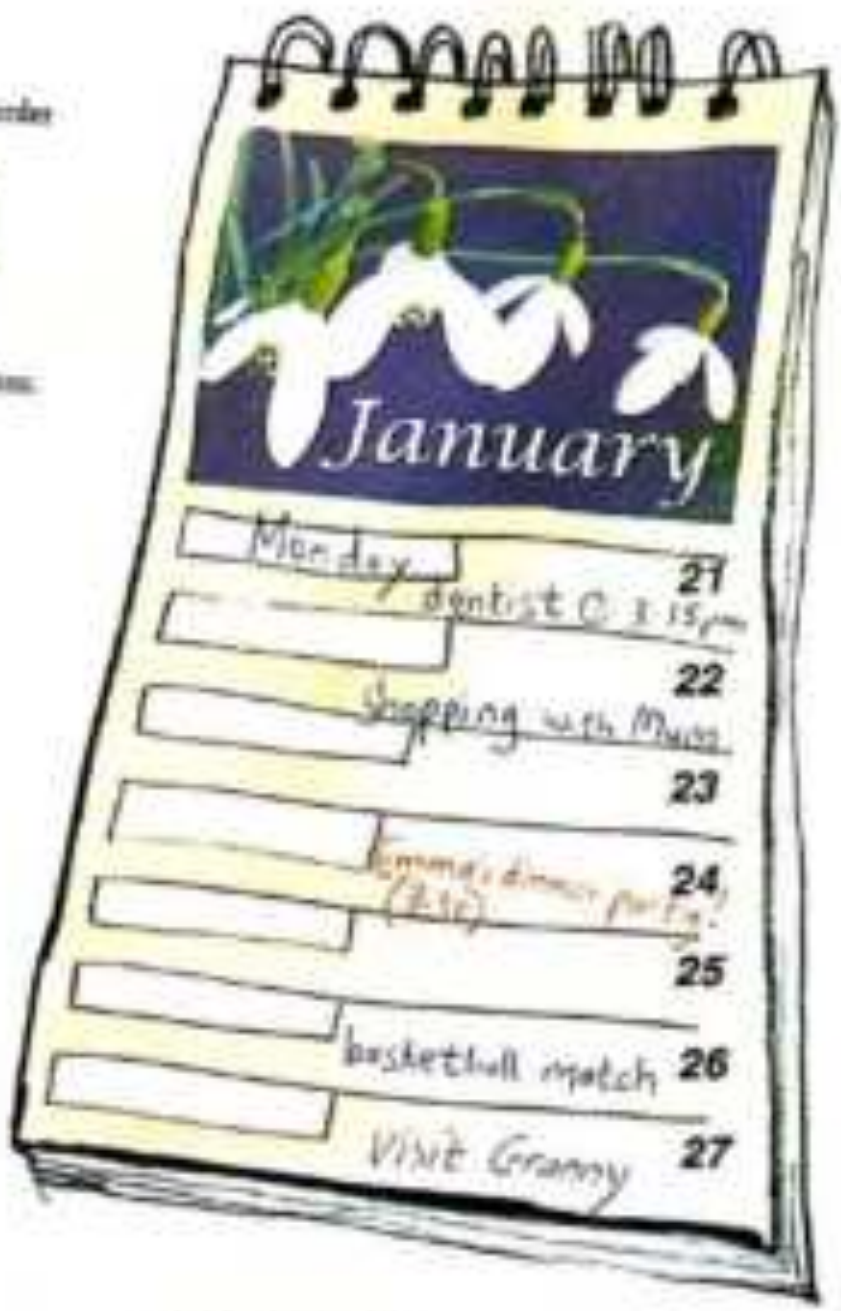 January
Monday 21
dentist @ 3 15pm
22
Shopping with Mum
23
Emma's dinner party! 24
25
basketball match 26
Visit Granny 27